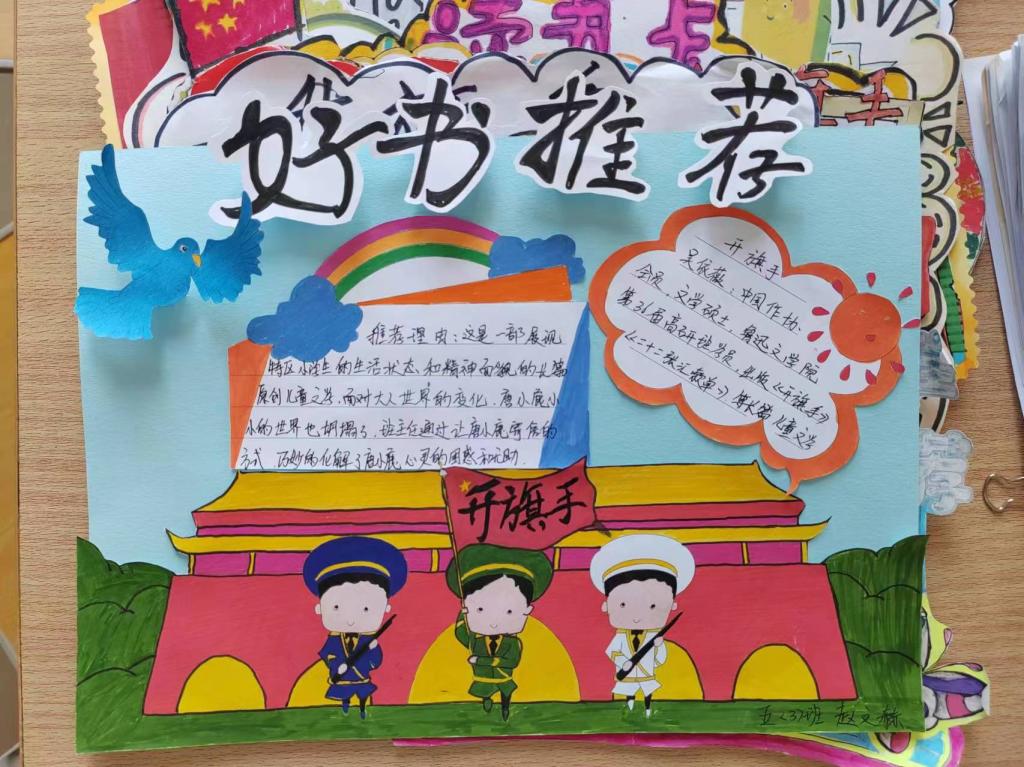 读书卡
好书推荐
开旗手
吴依薇：中国作协
会员，文学硕士，鲁迅文学院
第31届高研班学员，出版《开旗手》
《二十二张汇款单》等长篇儿童文学
推荐理由：这是一部展现
特区小学生的生活状态和精神面貌的长篇
原创儿童文学，面对大人世界的变化，唐小鹿小
小的世界也坍塌了，班主任通过让唐小鹿寄信的
方式，巧妙的化解了唐小鹿心灵的困惑和无助．
开旗手
五（3）班 赵文赫